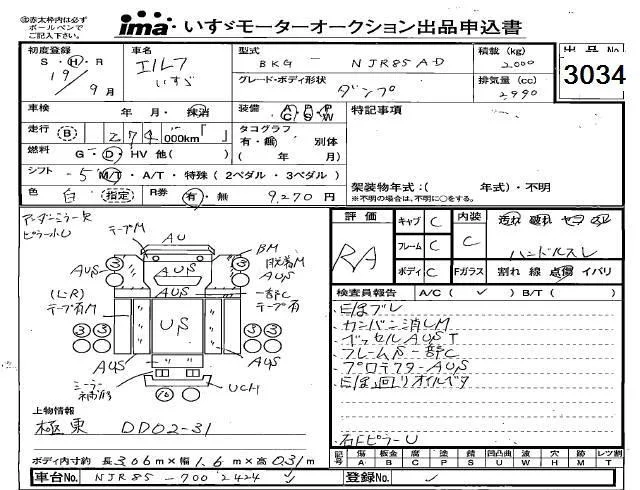 ㊟赤太枠内は必ず
ボールペンで
ご記入下さい。
ima いすゞモーターオークション出品申込書
初度登録
S・H・R
19年
9月
車名
エルフ
いすゞ
型式
BKG- NJR85AD
グレード・ボディ形状
ダンプ
積載 (kg)
2,000
排気量 (cc)
2,990
出品No
3034
車検
年 月・抹消
装備
A/C P/S P/W
特記事項
走行
B 274 000km「 」
タコグラフ
有・無 別体
( 年 月)
燃料
G・D・HV 他( )
シフト
-5 M/T・A/T・特殊 ( 2ペダル・3ペダル )
色
白 指定
R券
有・無 9,270 円
架装物年式:( 年式)・不明
※不明の場合は、不明に○をする。
アンダーミラー欠
ピラー小U
テープM
AU
AUS
BM
脱着M
AUS
一部C
テープ有
(L・R)
テープ有M
AUS
US
AUS
AUS
ミーラー
補修
UCH
3
3
3 3
3 3
10
評価
RA
キャブ C
フレーム C
ボディ C
内装
C
汚れ 破れ
ハンドルスレ
Fガラス
割れ 線 点傷 イバリ
検査員報告 A/C ( ✓ ) B/T ( )
E/gブレ
カンバン消しM
ベッセルAUST
フレームS一部C
プロテクターAUS
E/g廻りオイルベタ
右FピラーU
上物情報
極東 DD02-31
ボディ内寸約 長3.06m×幅1.6m×高0.31m
記号
傷 板金 腐 塗 錆 凹凸曲 波 穴 跡 レツ割
A B C P S U W H M T
車台No.
NJR85-7002424
登録No.